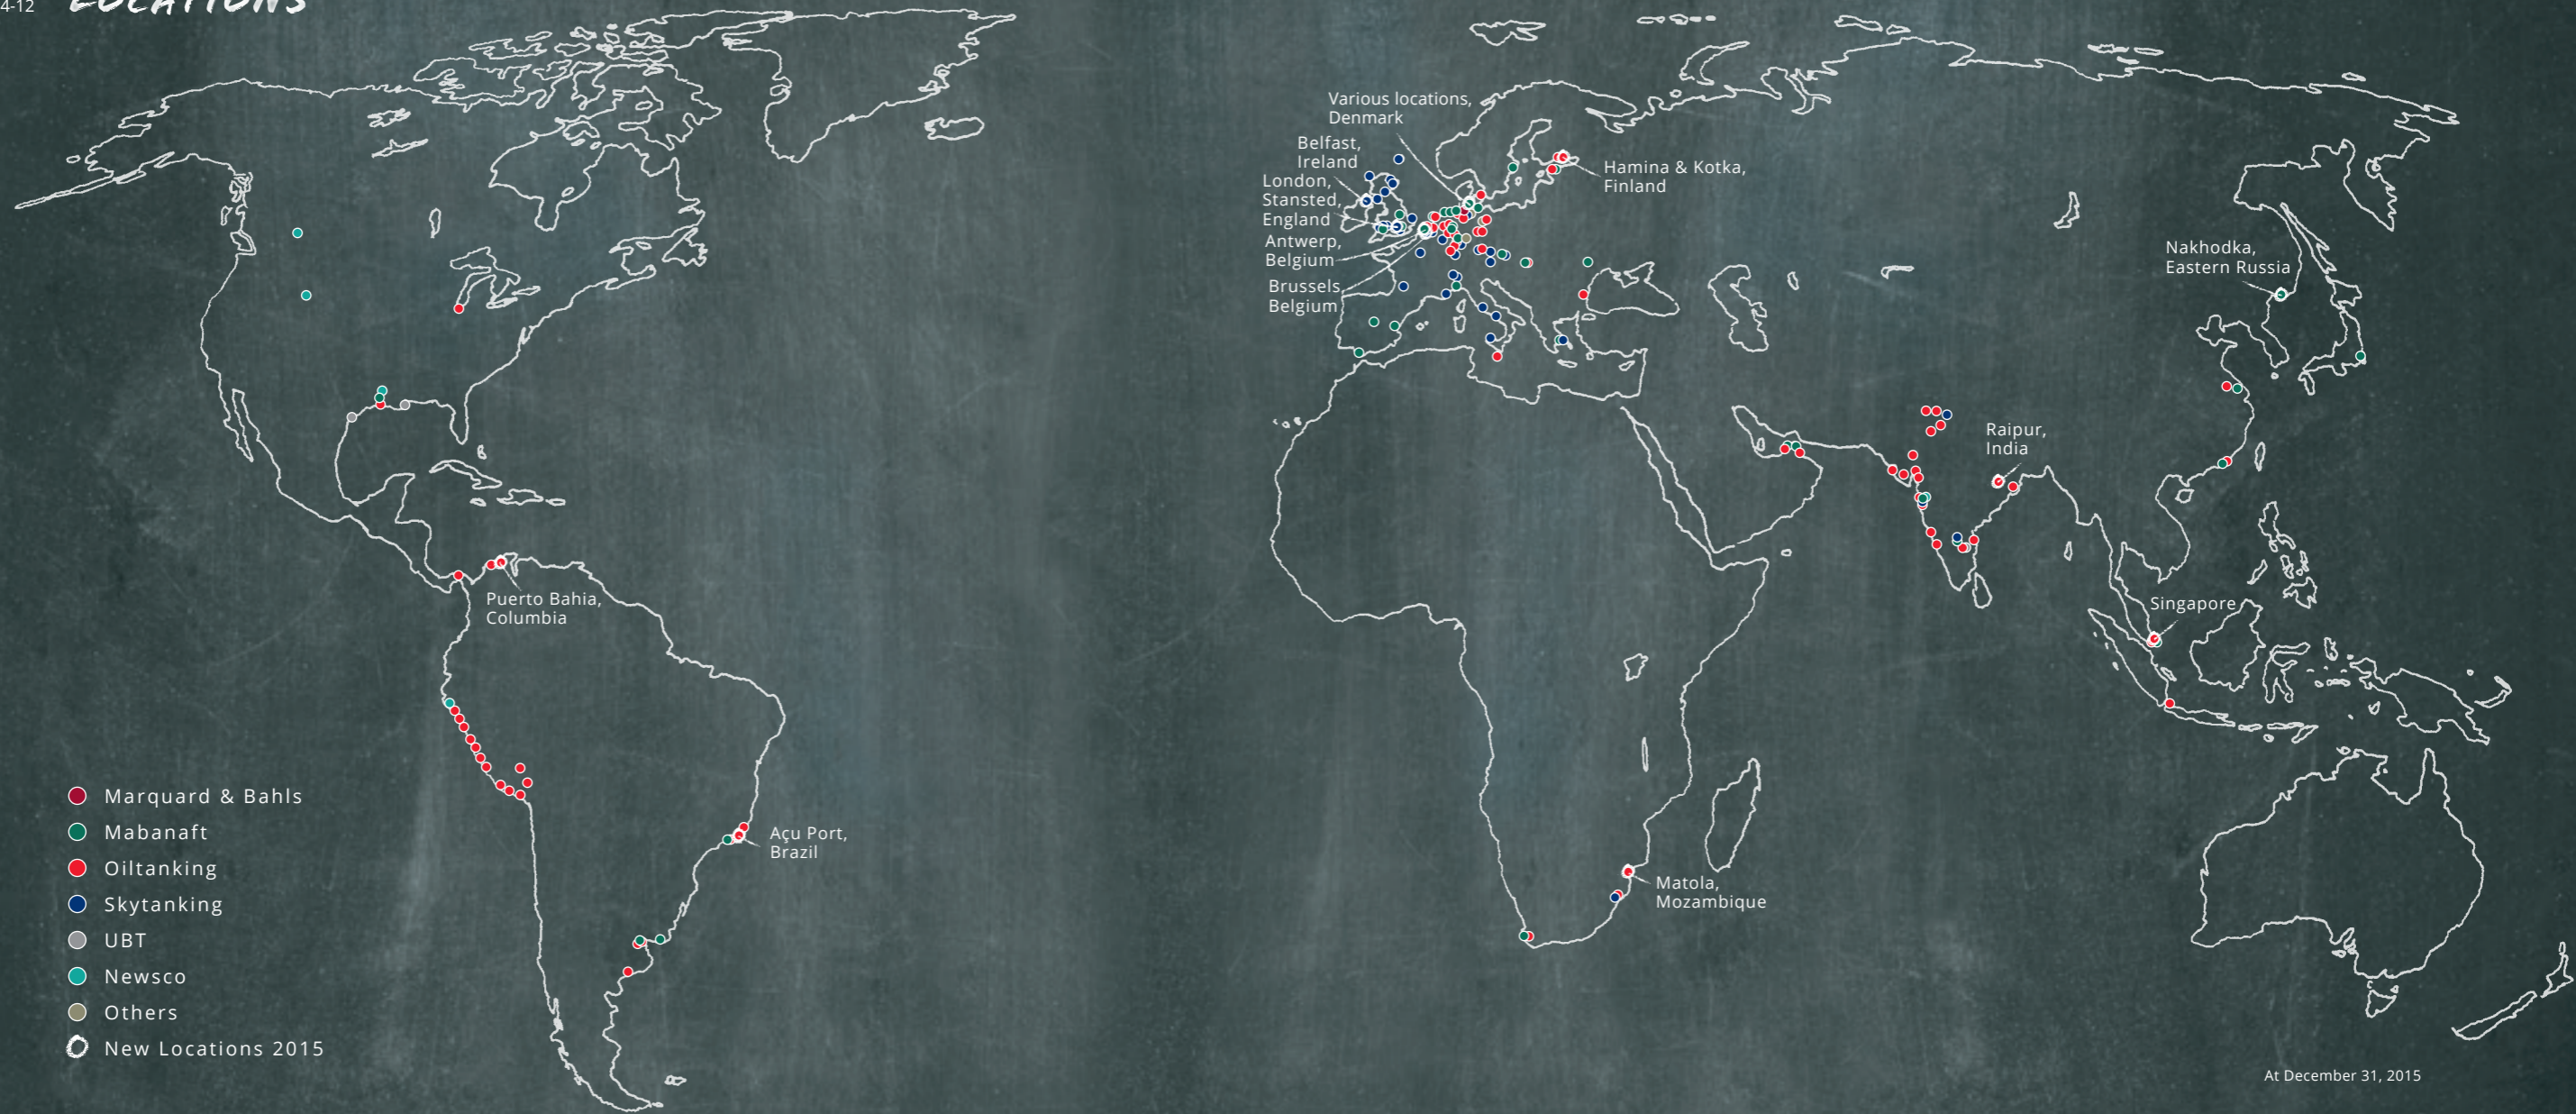 4-12
LOCATIONS
Various locations,
Denmark
Belfast,
Ireland
London,
Stansted,
England
Antwerp,
Belgium
Brussels,
Belgium
Hamina & Kotka,
Finland
Nakhodka,
Eastern Russia
Raipur,
India
Singapore
Puerto Bahia,
Columbia
Açu Port,
Brazil
Matola,
Mozambique
Marquard & Bahls
Mabanaft
Oiltanking
Skytanking
UBT
Newsco
Others
New Locations 2015
At December 31, 2015